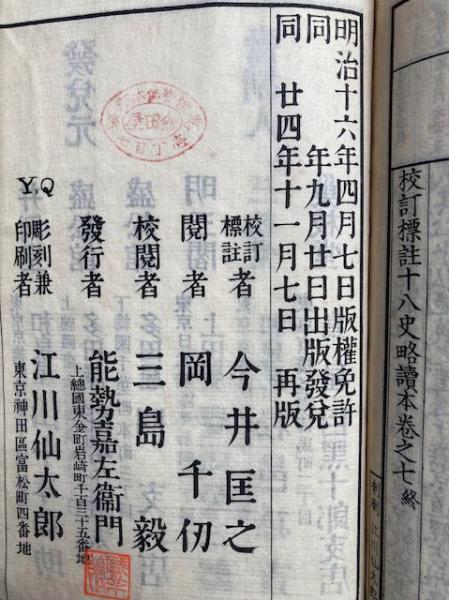 校訂標註十八史略讀本卷之七終
明治十六年四月七日版權免許
同年九月廿日出版發兌
同廿四年十一月七日再版
校訂標註者 今井匡之
閱者 岡千仞
校閱者 三島毅
發行者 能勢嘉左衞門
上總國東金町岩崎町千百三十五番地
YQ
彫刻兼印刷者 江川仙太郎
東京神田區富松町四番地